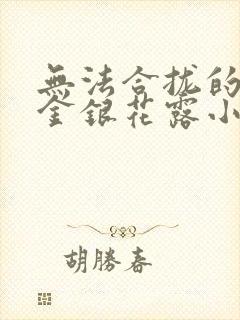 無法合拢的
金銀花露小
胡勝春